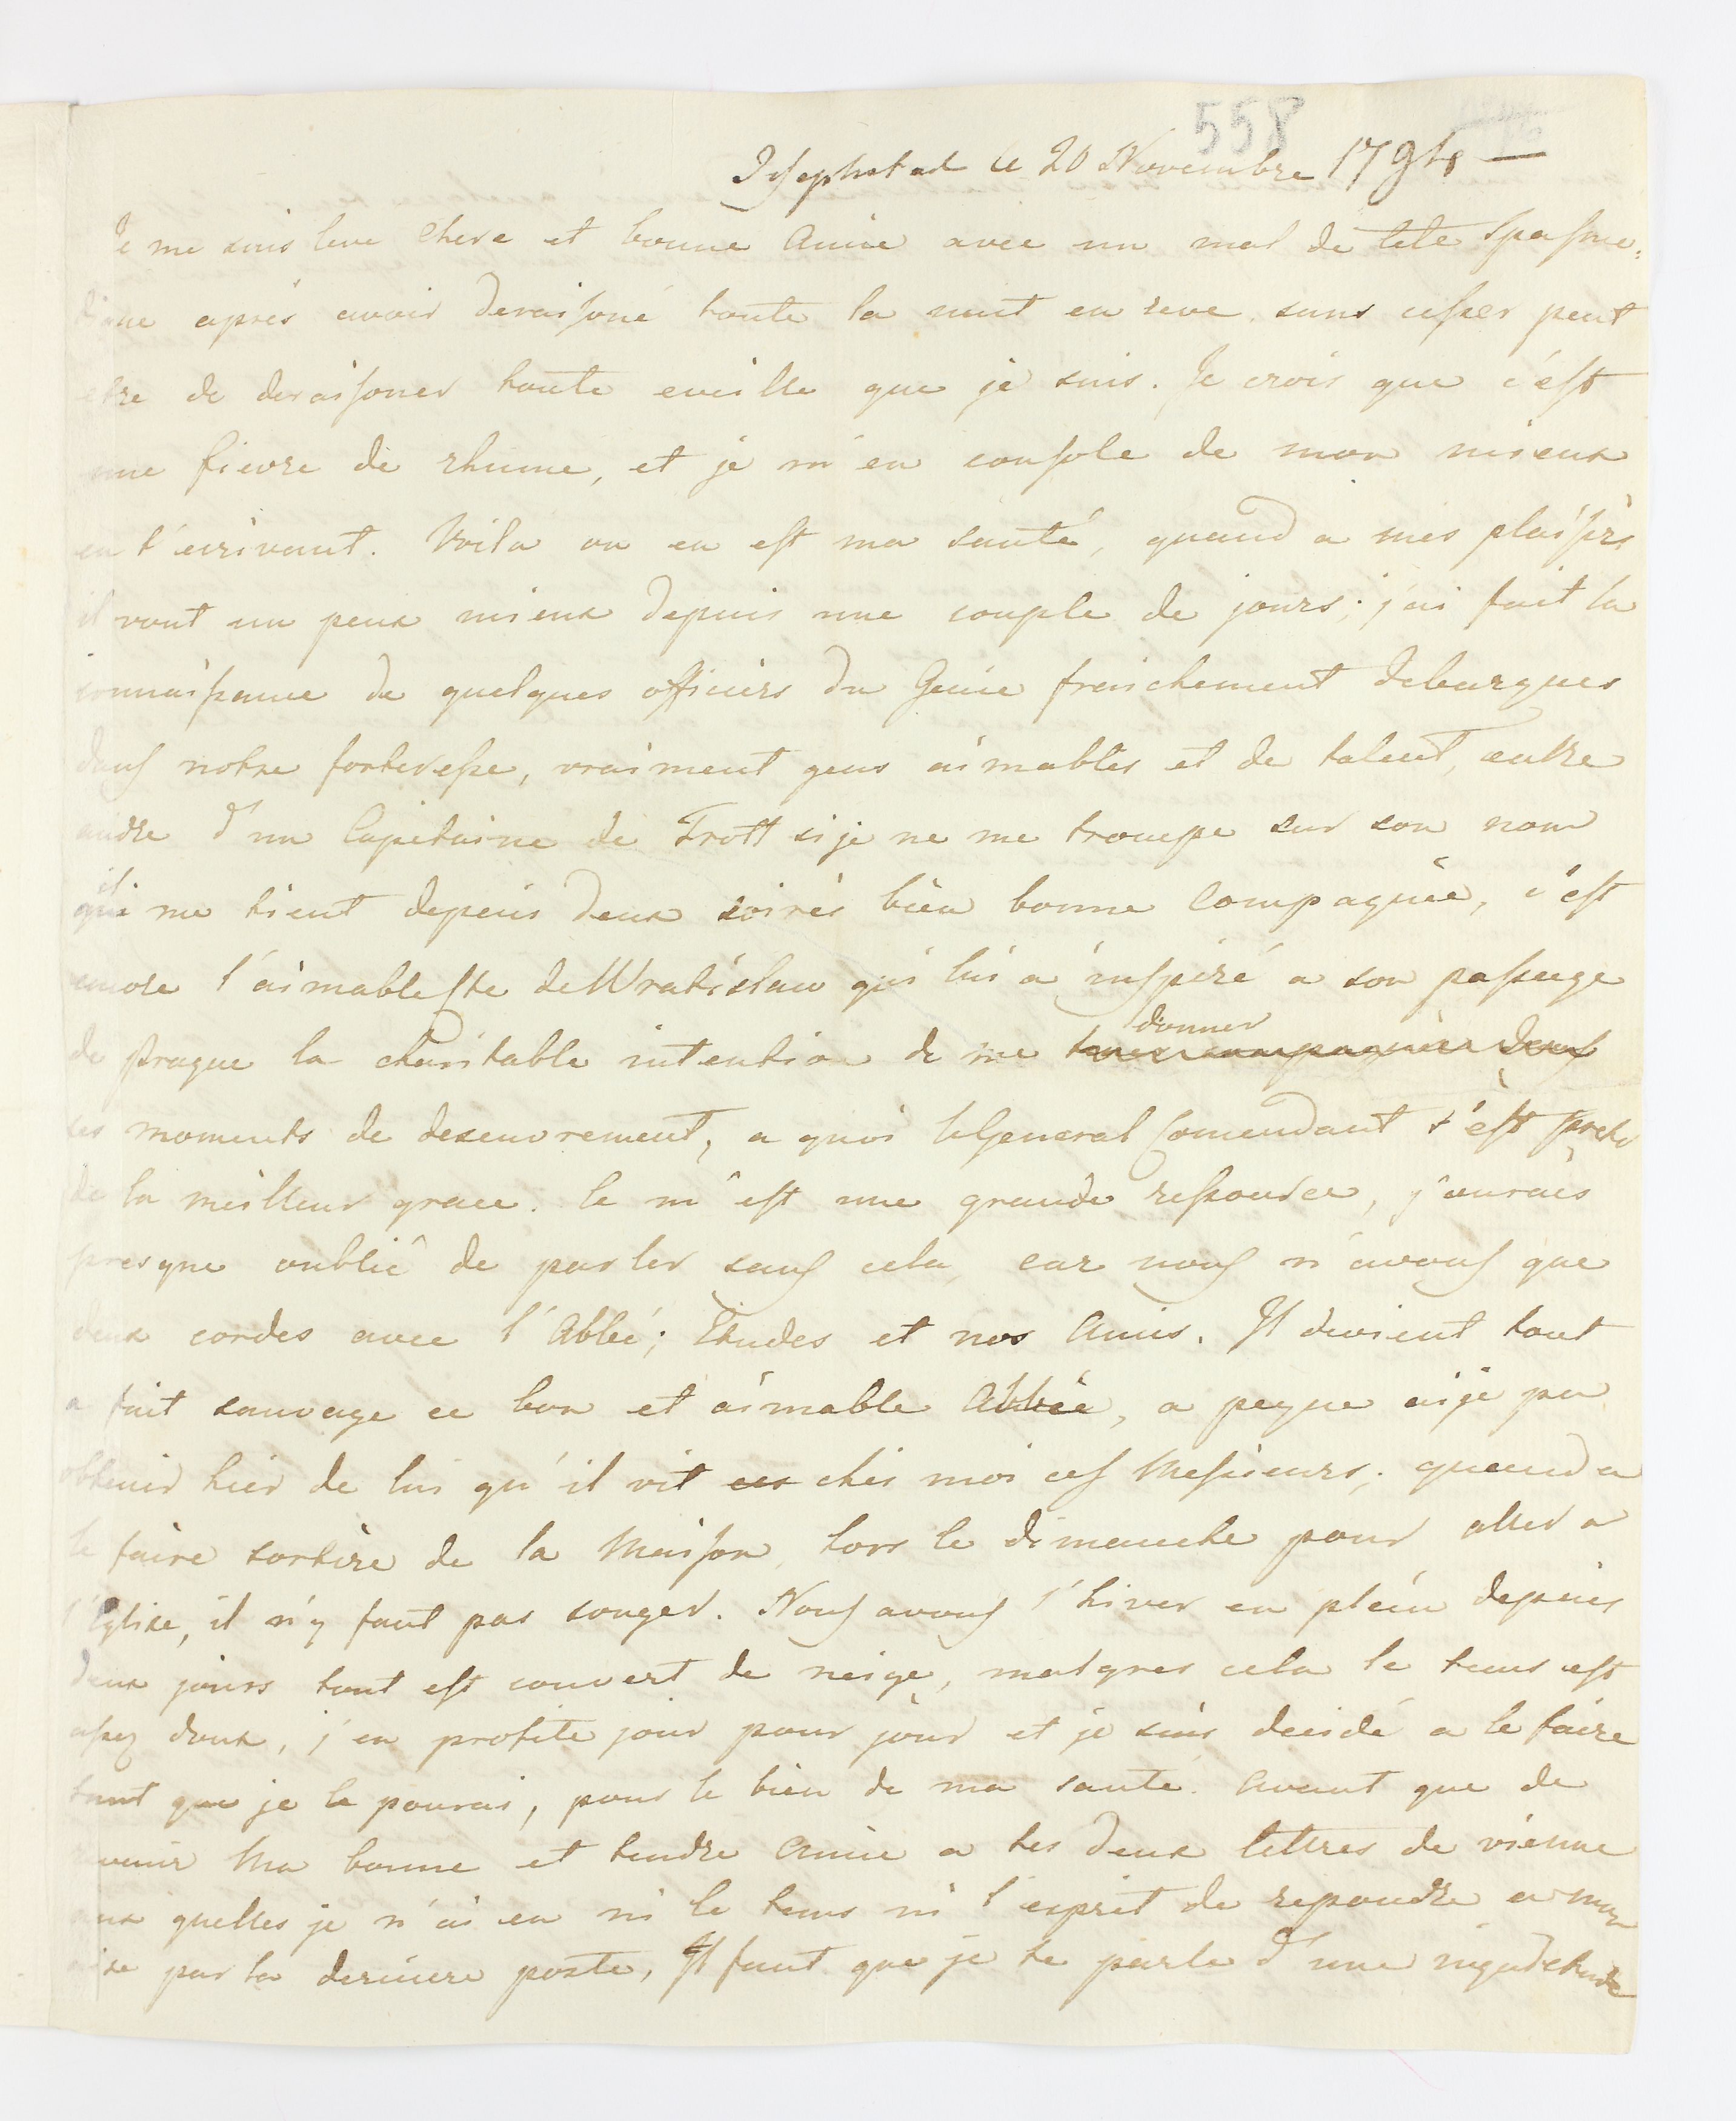 558
Josephstad le 20 Novembre 1794 —
Je me suis leve chere et bonne Amie avec un mal de tete Spasmo=
dique aprés avoir deraisoné toute la nuit en reve, sans cesser peut
etre de deraisoner toute eveille que je suis. Je crois que c'est
une fievre de rhume, et je m'en console de mon mieux
en t'ecrivant. Voila ou en est ma santé, quand a mes plaisirs
il vont un peux mieux depuis une couple de jours; j'ai fait la
connaissance de quelques officiers du Genie fraichement debarques
dans notre forteresse, vraiment gens aimables et de talent, entre
autre d'un Capitaine de Trott si je ne me trompe sur son nom
qui me tient depuis deux soirés bien bonne Compagnie, c'est
encore l'aimable Cte de Wratislaw qui lui a inspiré a son passage
de Prague la charitable intention de me donner
ses moments de deseuvrement, a quoi le General Comendant s'est preté
de la meilleur grace. Ce m'est une grande ressource, j'aurais
presque oublié de parler sans cela, car nous n'avons que
deux cordes avec l'Abbé; Etudes et nos Amis. Il devient tout
a fait sauvage ce bon et aimable Abbée, a peyne aije pu
obtenir hier de lui qu'il vit ces chés moi ces Messieurs; quand a
le faire sortire de la Maison, hors le dimanche pour aller a
l'Eglise, il n'y faut pas songer. Nous avons l'hiver en plein depuis
deux jours tout est couvert de neige, malgres cela le tems est
assez doux, j'en profite jour pour jour et je suis decidé a le faire
tant que je le pourai, pour le bien de ma santé. Avant que de
revenir Ma bonne et tendre Amie a tes deux lettres de vienne
aux quelles je n'ai eu ni le tems ni l'esprit de repondre a mon
aise par la derniere poste, Il faut que je te parle d'une